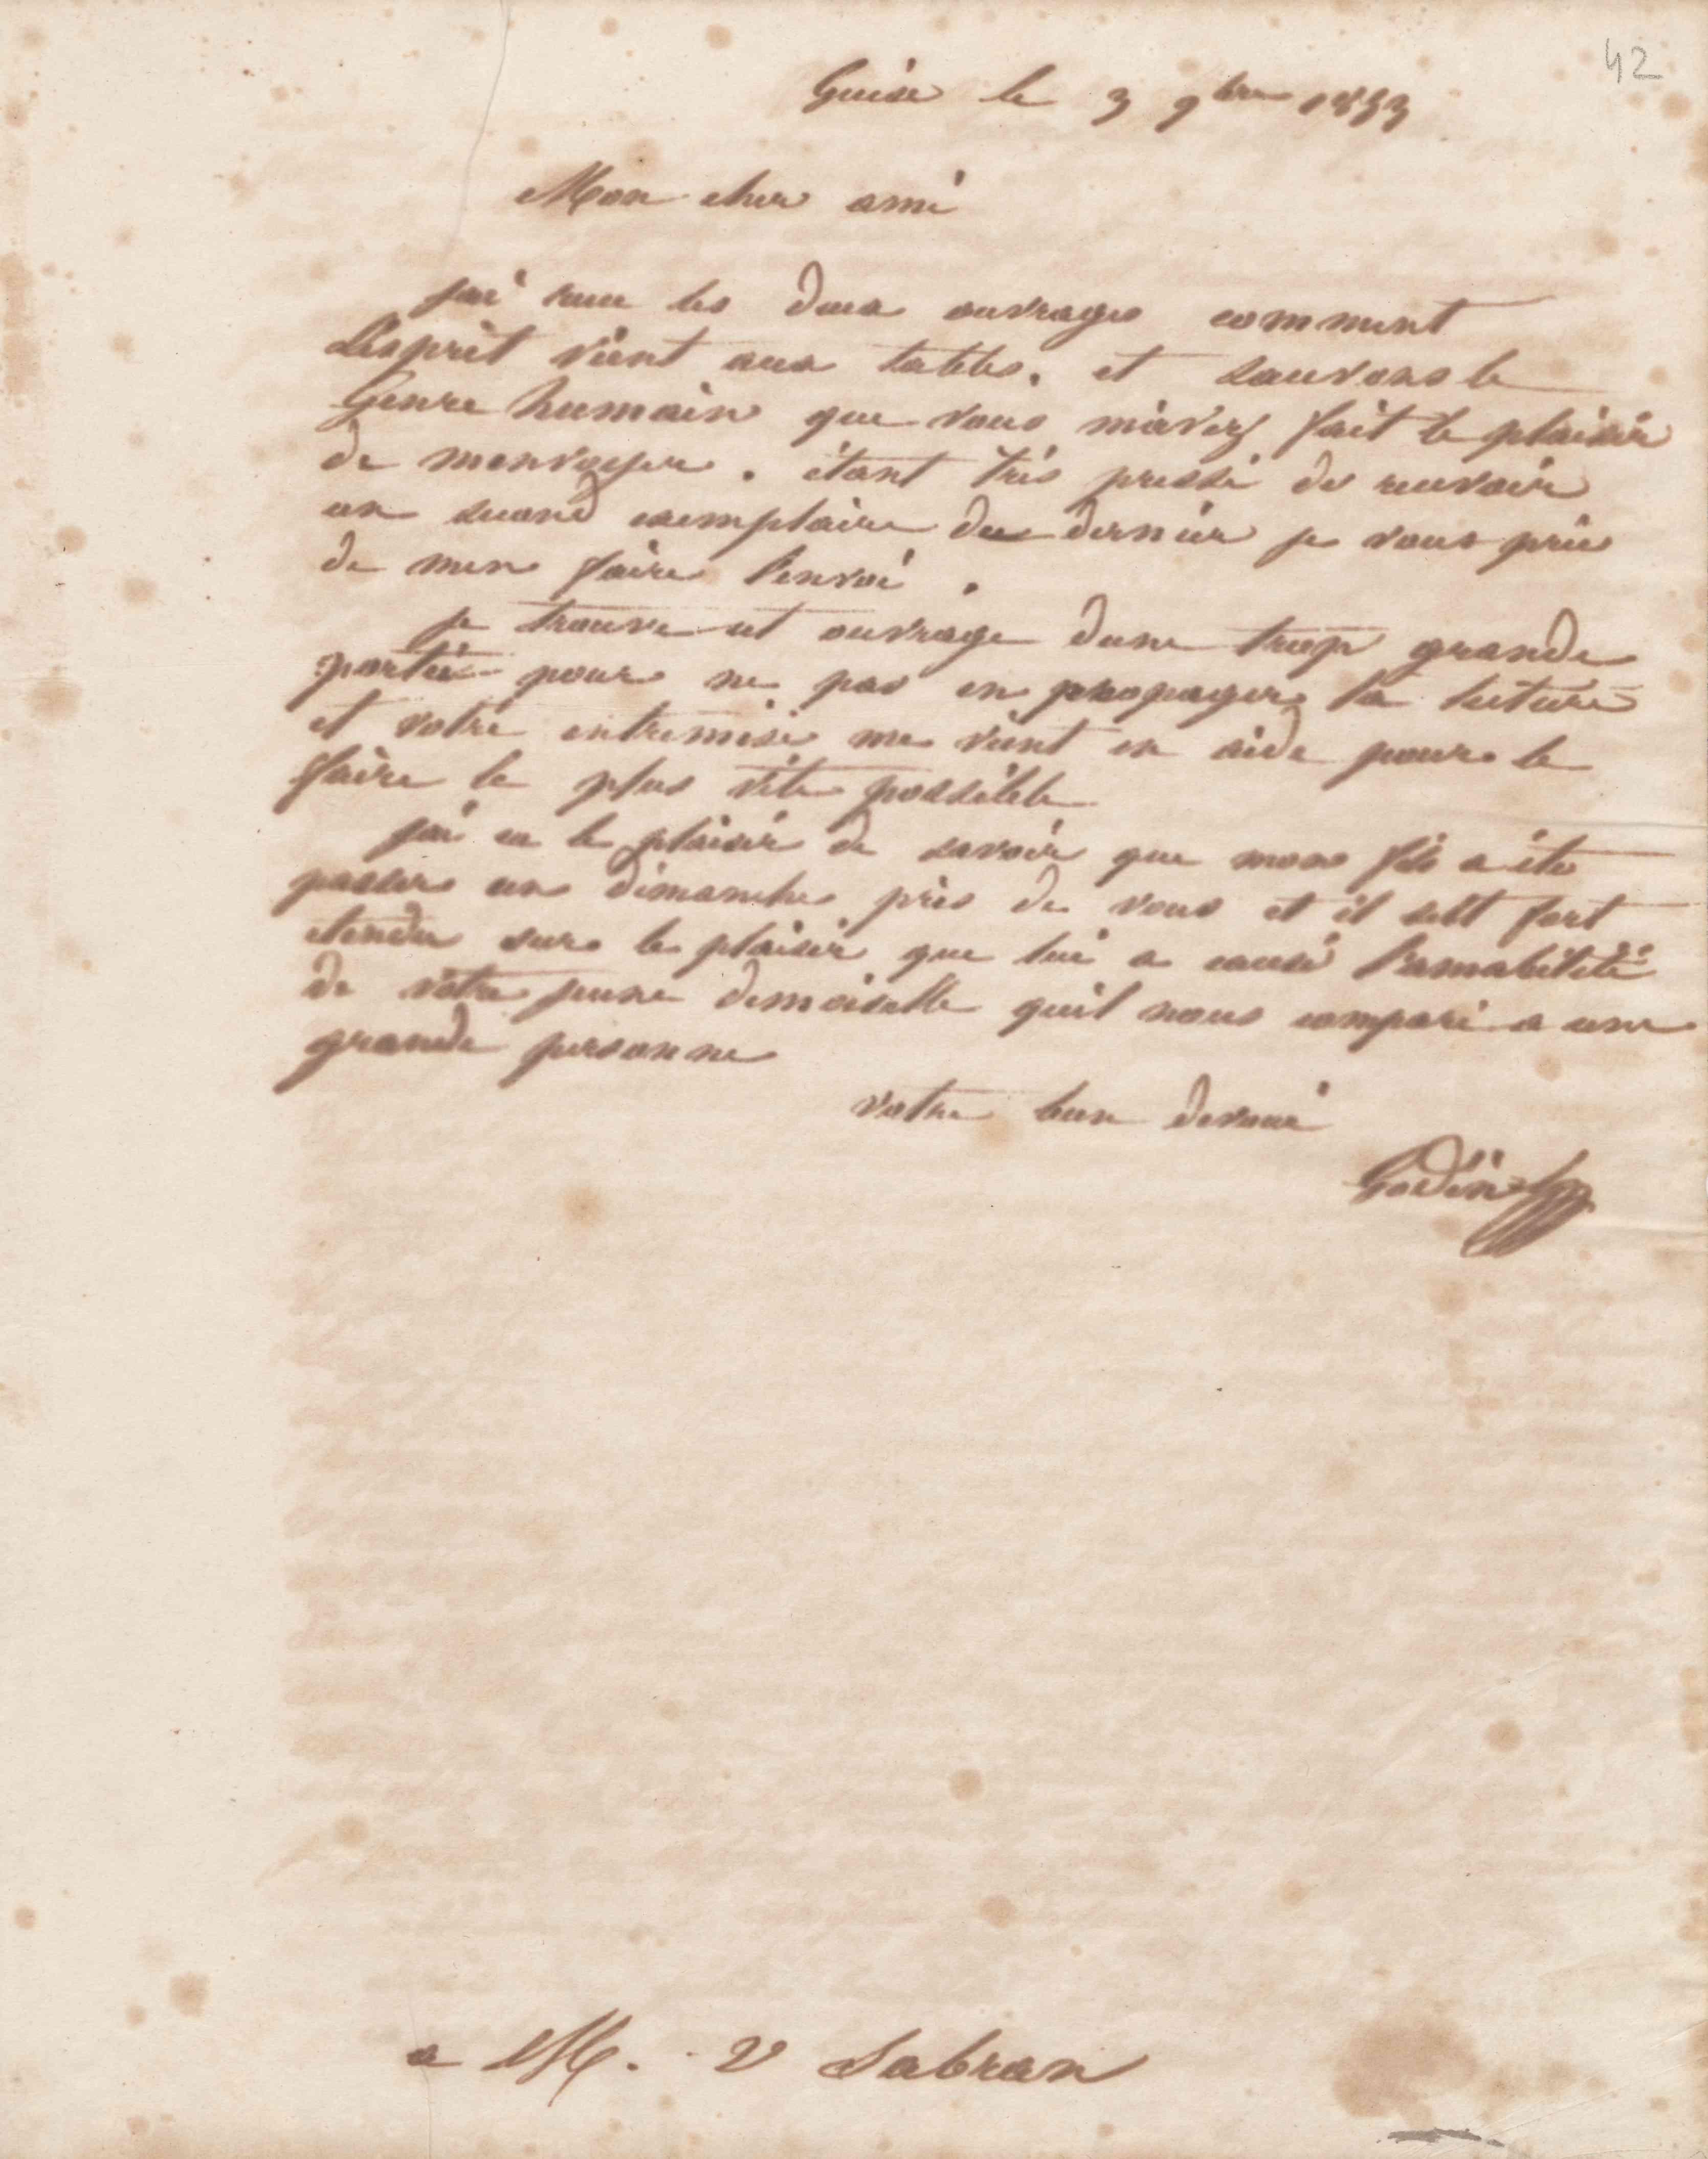 42
Guise le 3 9bre 1853
Mon cher ami
jai recu les deux ouvrages comment
L'esprit vient aux tables. et sauvons le
Genre humain que vous m'avez fait le plaisir
de menvoyer. étant très pressé de recevoir
un second exemplaire du dernier je vous prie
de men faire l'envoi.
je trouve cet ouvrage dune trop grande
portée pour ne pas en propager la lecture
et votre entremise me vient en aide pour le
faire le plus vite possible
jai eu le plaisir de savoir que mon fils a été
passer un dimanche près de vous et il sest fort
etendu sur le plaisir que lui a causé l'amabilité
de votre jeune demoiselle quil nous compare a une
grande personne
votre bien devoué
Godin
a M. V Sabran